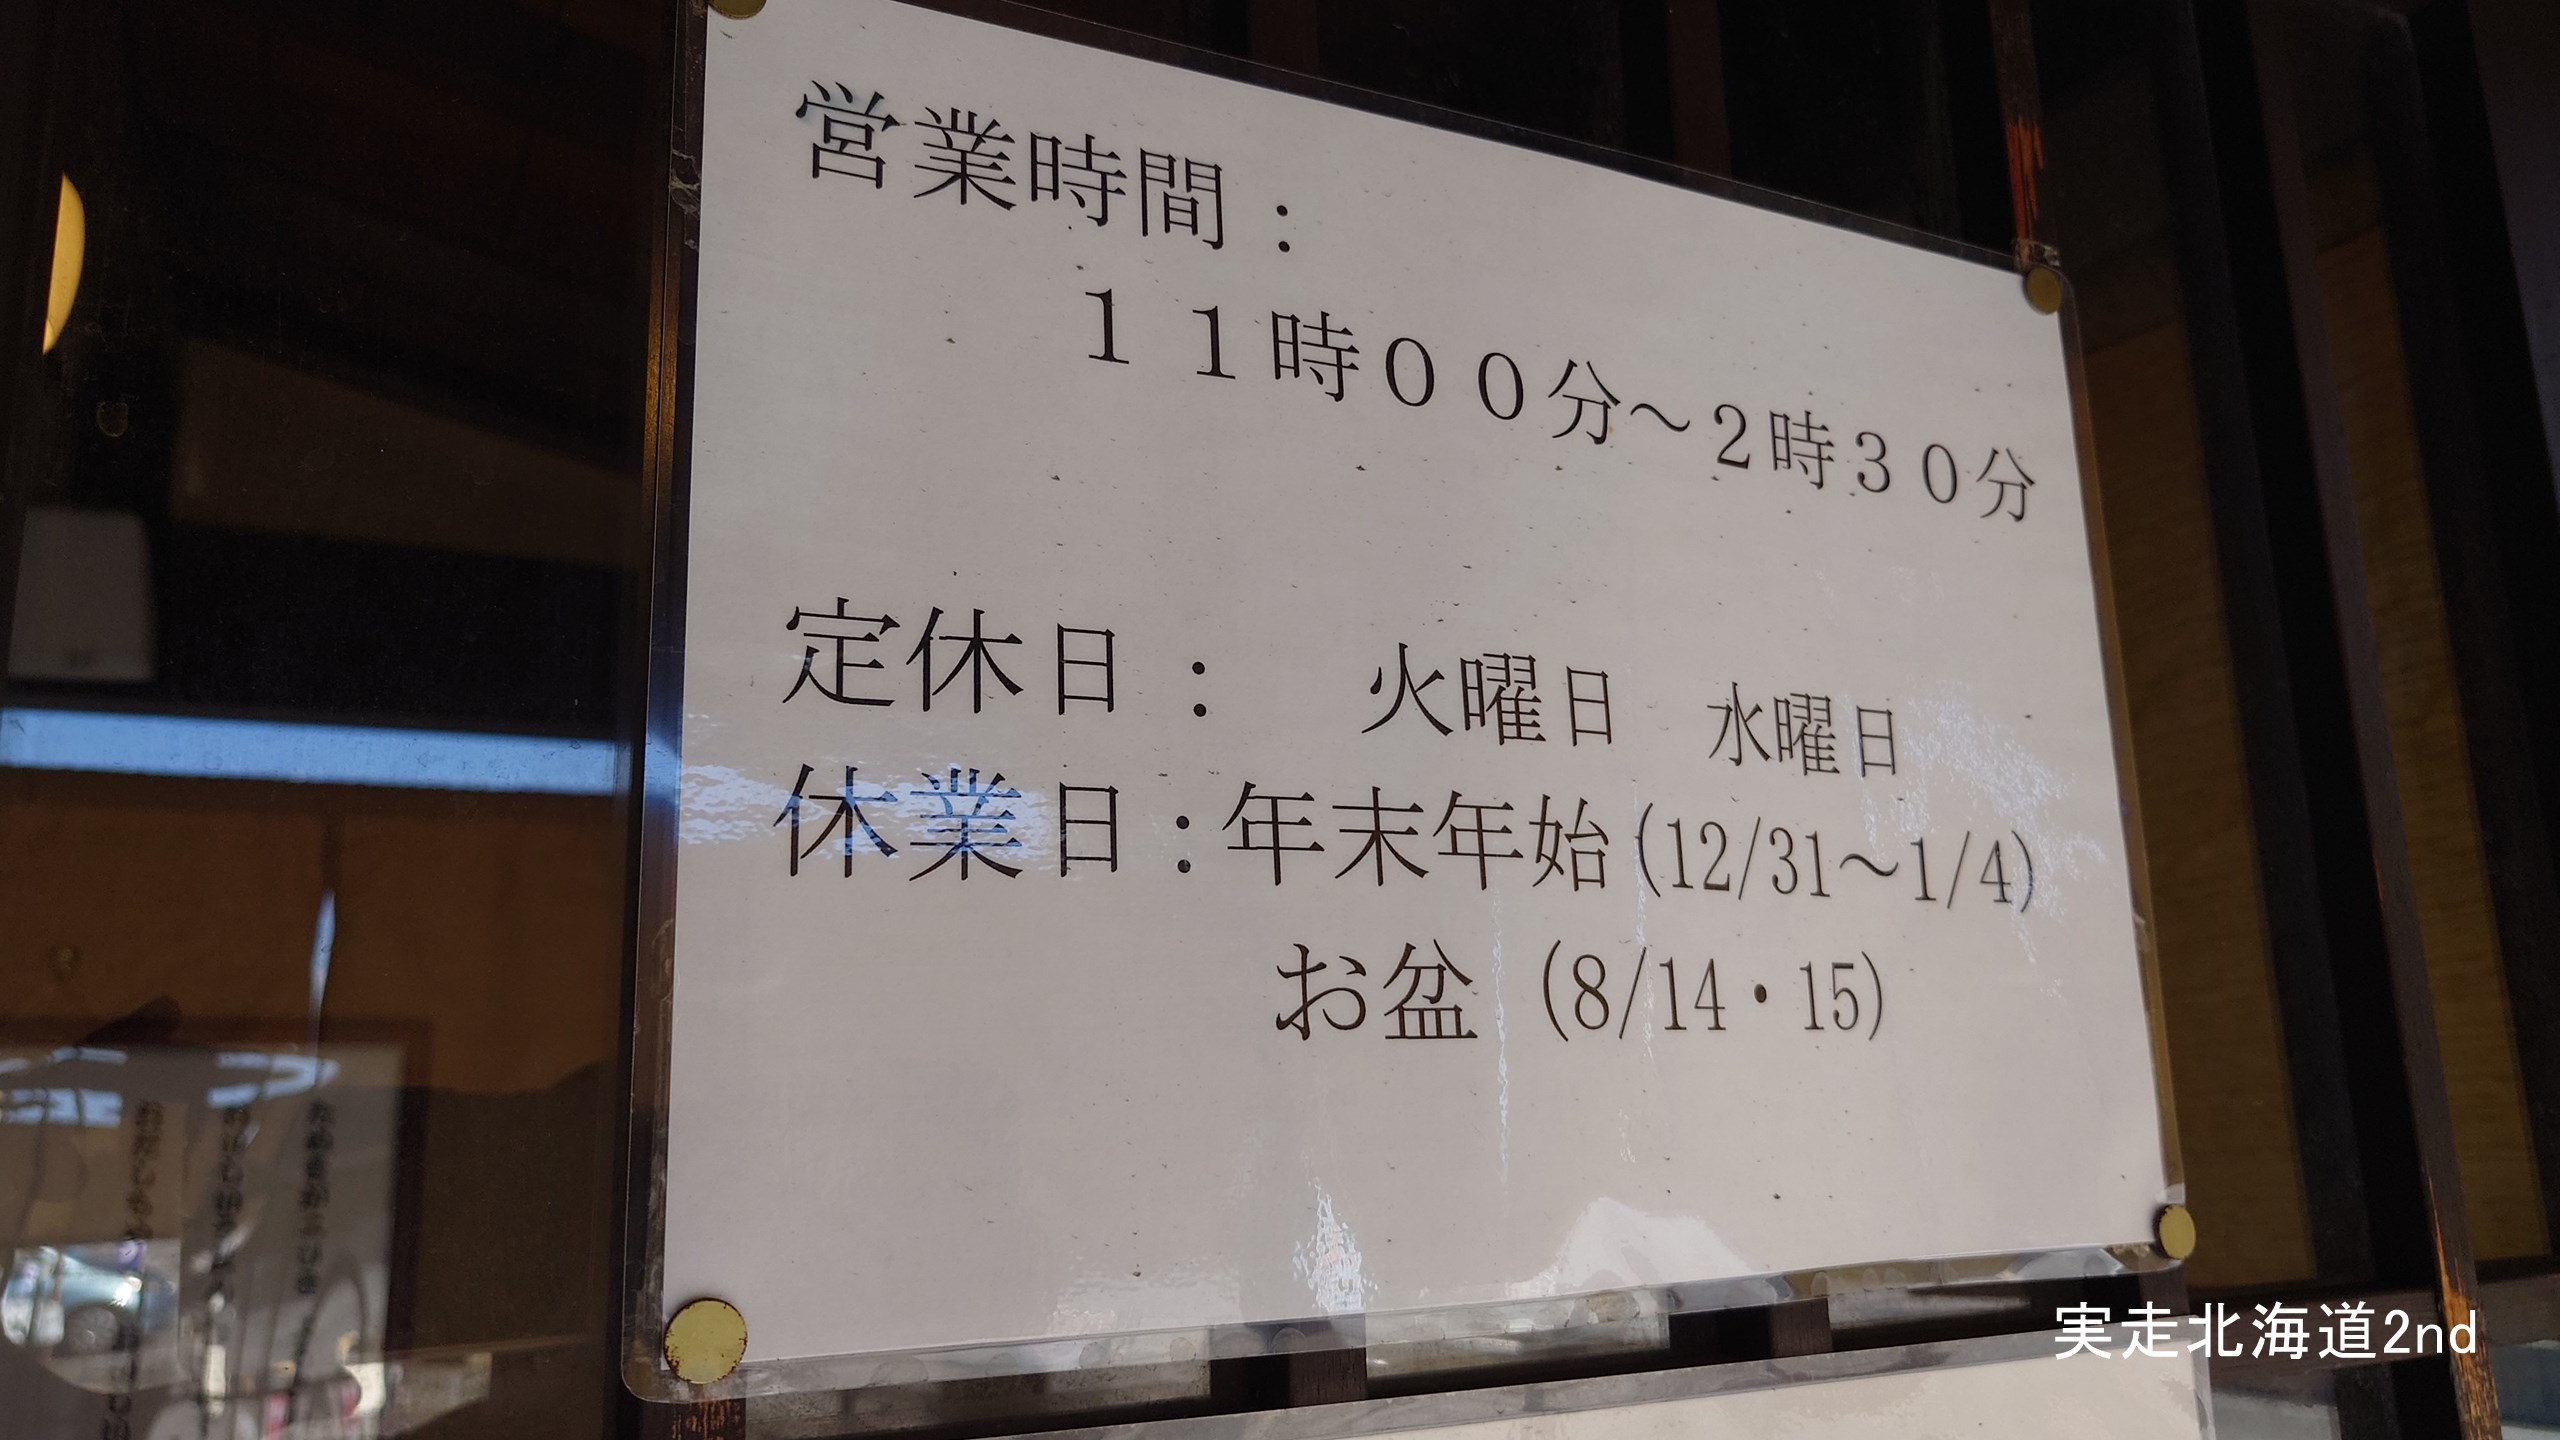 営業時間：
１１時００分～２時３０分
定休日：　火曜日　水曜日
休業日：年末年始(12/31～1/4)
お盆 (8/14・15)
実走北海道2nd